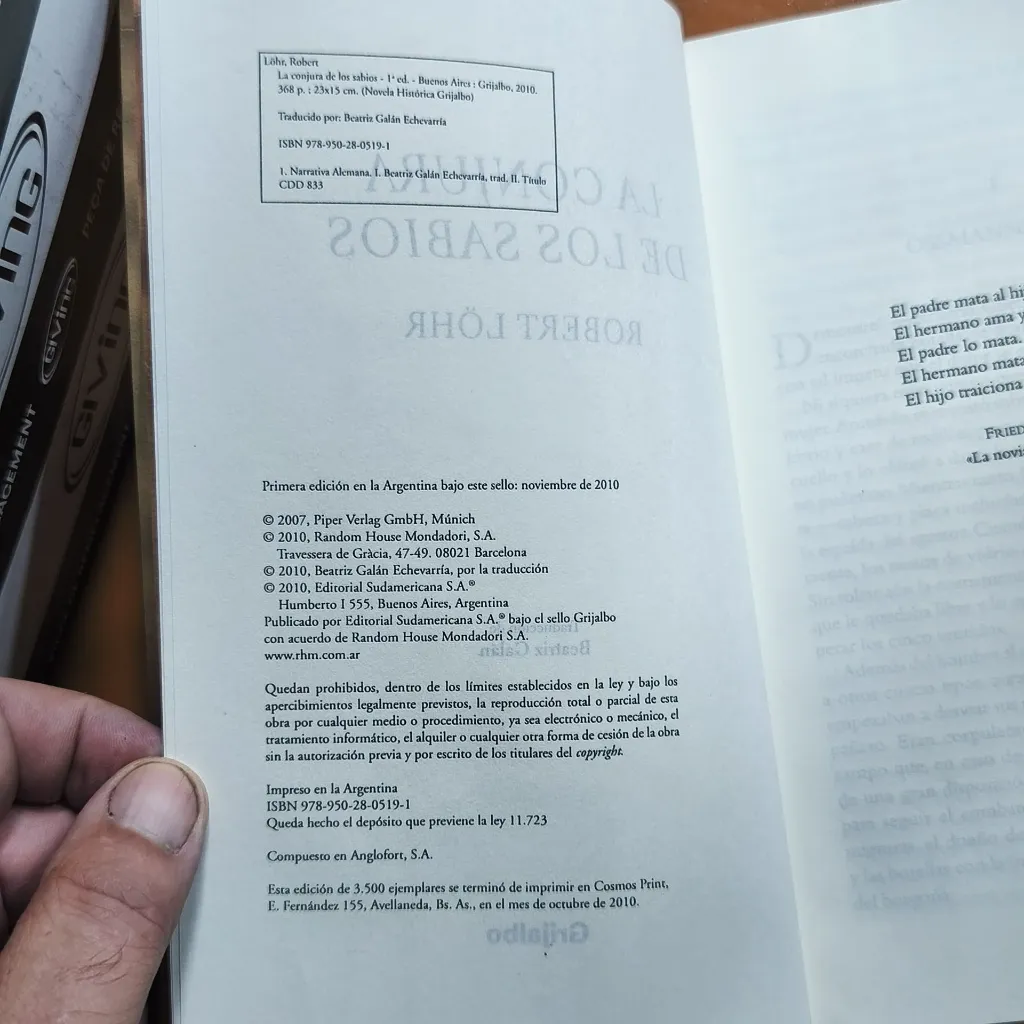 Löhr, Robert
La conjura de los sabios - 1ª ed. - Buenos Aires : Grijalbo, 2010.
368 p. ; 23x15 cm. (Novela Histórica Grijalbo)
Traducido por: Beatriz Galán Echevarría
ISBN 978-950-28-0519-1
1. Narrativa Alemana. I. Beatriz Galán Echevarría, trad. II. Título
CDD 833
LA CONJURA
DE LOS SABIOS
ROBERT LÖHR
Primera edición en la Argentina bajo este sello: noviembre de 2010
© 2007, Piper Verlag GmbH, Múnich
© 2010, Random House Mondadori, S.A.
Travessera de Gràcia, 47-49. 08021 Barcelona
© 2010, Beatriz Galán Echevarría, por la traducción
© 2010, Editorial Sudamericana S.A.®
Humberto I 555, Buenos Aires, Argentina
Publicado por Editorial Sudamericana S.A.® bajo el sello Grijalbo
con acuerdo de Random House Mondadori S.A.
Traducción de
www.rhm.com.ar
Beatriz Galán
Quedan prohibidos, dentro de los límites establecidos en la ley y bajo los
apercibimientos legalmente previstos, la reproducción total o parcial de esta
obra por cualquier medio o procedimiento, ya sea electrónico o mecánico, el
tratamiento informático, el alquiler o cualquier otra forma de cesión de la obra
sin la autorización previa y por escrito de los titulares del copyright.
Impreso en la Argentina
ISBN 978-950-28-0519-1
Queda hecho el depósito que previene la ley 11.723
Compuesto en Anglofort, S.A.
Esta edición de 3.500 ejemplares se terminó de imprimir en Cosmos Print,
E. Fernández 155, Avellaneda, Bs. As., en el mes de octubre de 2010.
Grijalbo
El padre mata al hi
El hermano ama y
El padre lo mata.
El hermano mata
El hijo traiciona
FRIED
«La novi
GIVING
PEÇA DE R
GIVING
ACEMENT